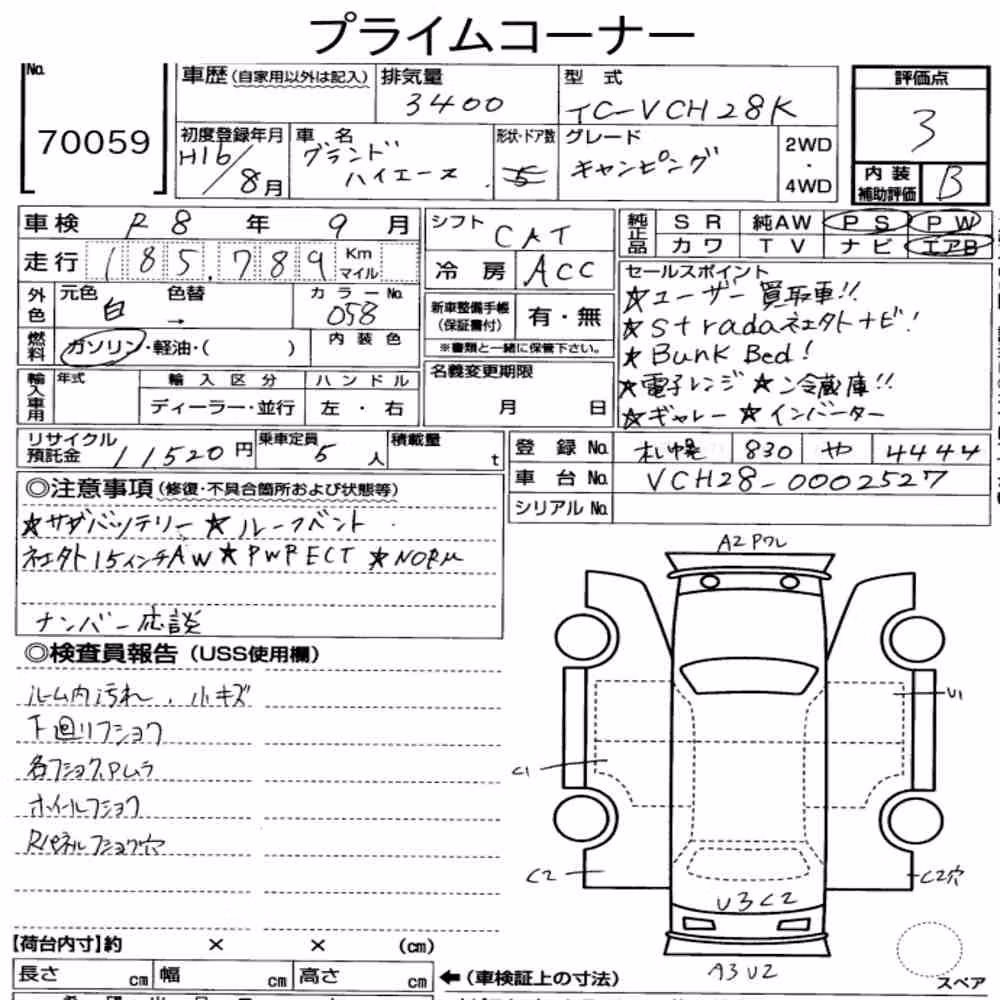 プライムコーナー
No.
70059
車歴 (自家用以外は記入)
排気量
3400
型 式
TC-VCH28K
評価点
3
初度登録年月
H16/8月
車 名
グランド
ハイエース
形状・ドア数
5
グレード
キャンピング
2WD
・
4WD
内 装
補助評価
B
車検 R8 年 9 月
走行 185,789 Km
マイル
外色
元色
白
色替
→
カラーNo.
058
燃料
ガソリン・軽油・( )
内 装 色
輸入車用
年式
輸 入 区 分
ディーラー・並行
ハ ン ド ル
左 ・ 右
シフト CAT
冷 房 ACC
新車整備手帳
(保証書付)
有・無
※書類と一緒に保管下さい。
名義変更期限
月 日
純正品
S R 純AW P S P W
カワ T V ナビ エアB
セールスポイント
★ユーザー買取車!!
★stradaネエタトナビ!
★Bunk Bed!
★電子レンジ★冷蔵庫!!
★ギャレー★インバーター
リサイクル
預託金
11,520円
乗車定員
5人
積載量
t
登 録 No. 札幌 830 や 4444
車 台 No. VCH28-0002527
シリアル No.
◎注意事項(修復・不具合箇所および状態等)
★サブバッテリー★ルーフベント
ネエタト15インチAW★PWPECT★NORM
ナンバー応談
◎検査員報告(USS使用欄)
ルーム内汚れ、小キズ
下廻リフショク
各フショク、Pムラ
ホイールフショク
Rパネルフショク穴
A2Pワレ
U1
C1
C2
C2穴
U3C2
A3U2
スペア
【荷台内寸】約 × × (cm)
長さ cm 幅 cm 高さ cm
←(車検証上の寸法)